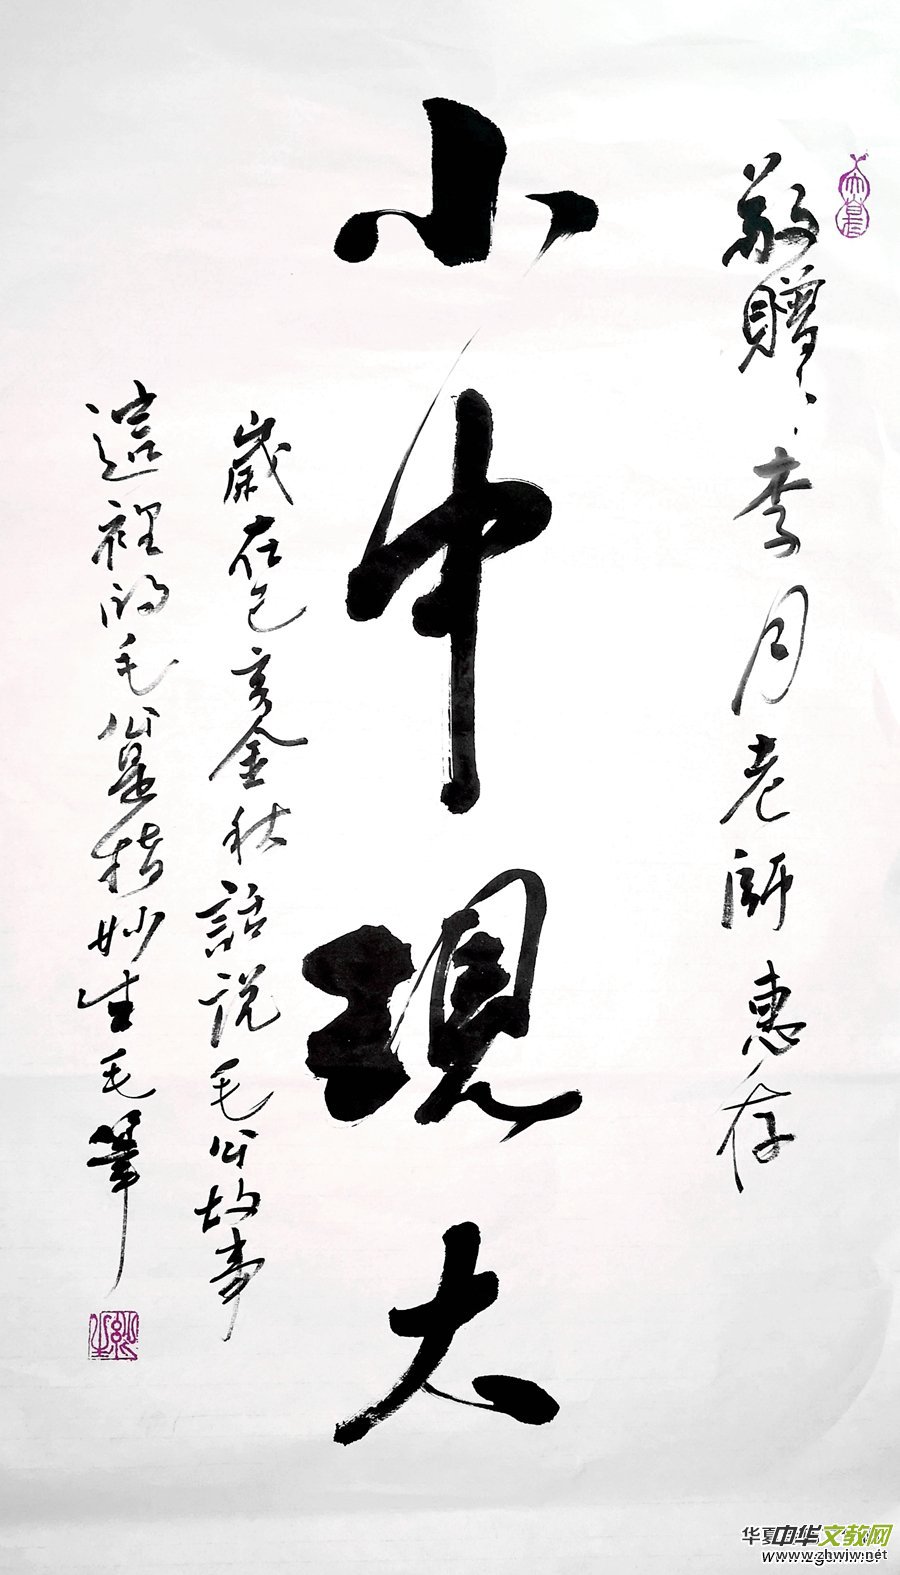 敬贈李月老師惠存
小中現大
歲在己亥金秋話説毛公故事
這裡的毛公是指妙生毛筆
中华文教网
www.zhwjw.net